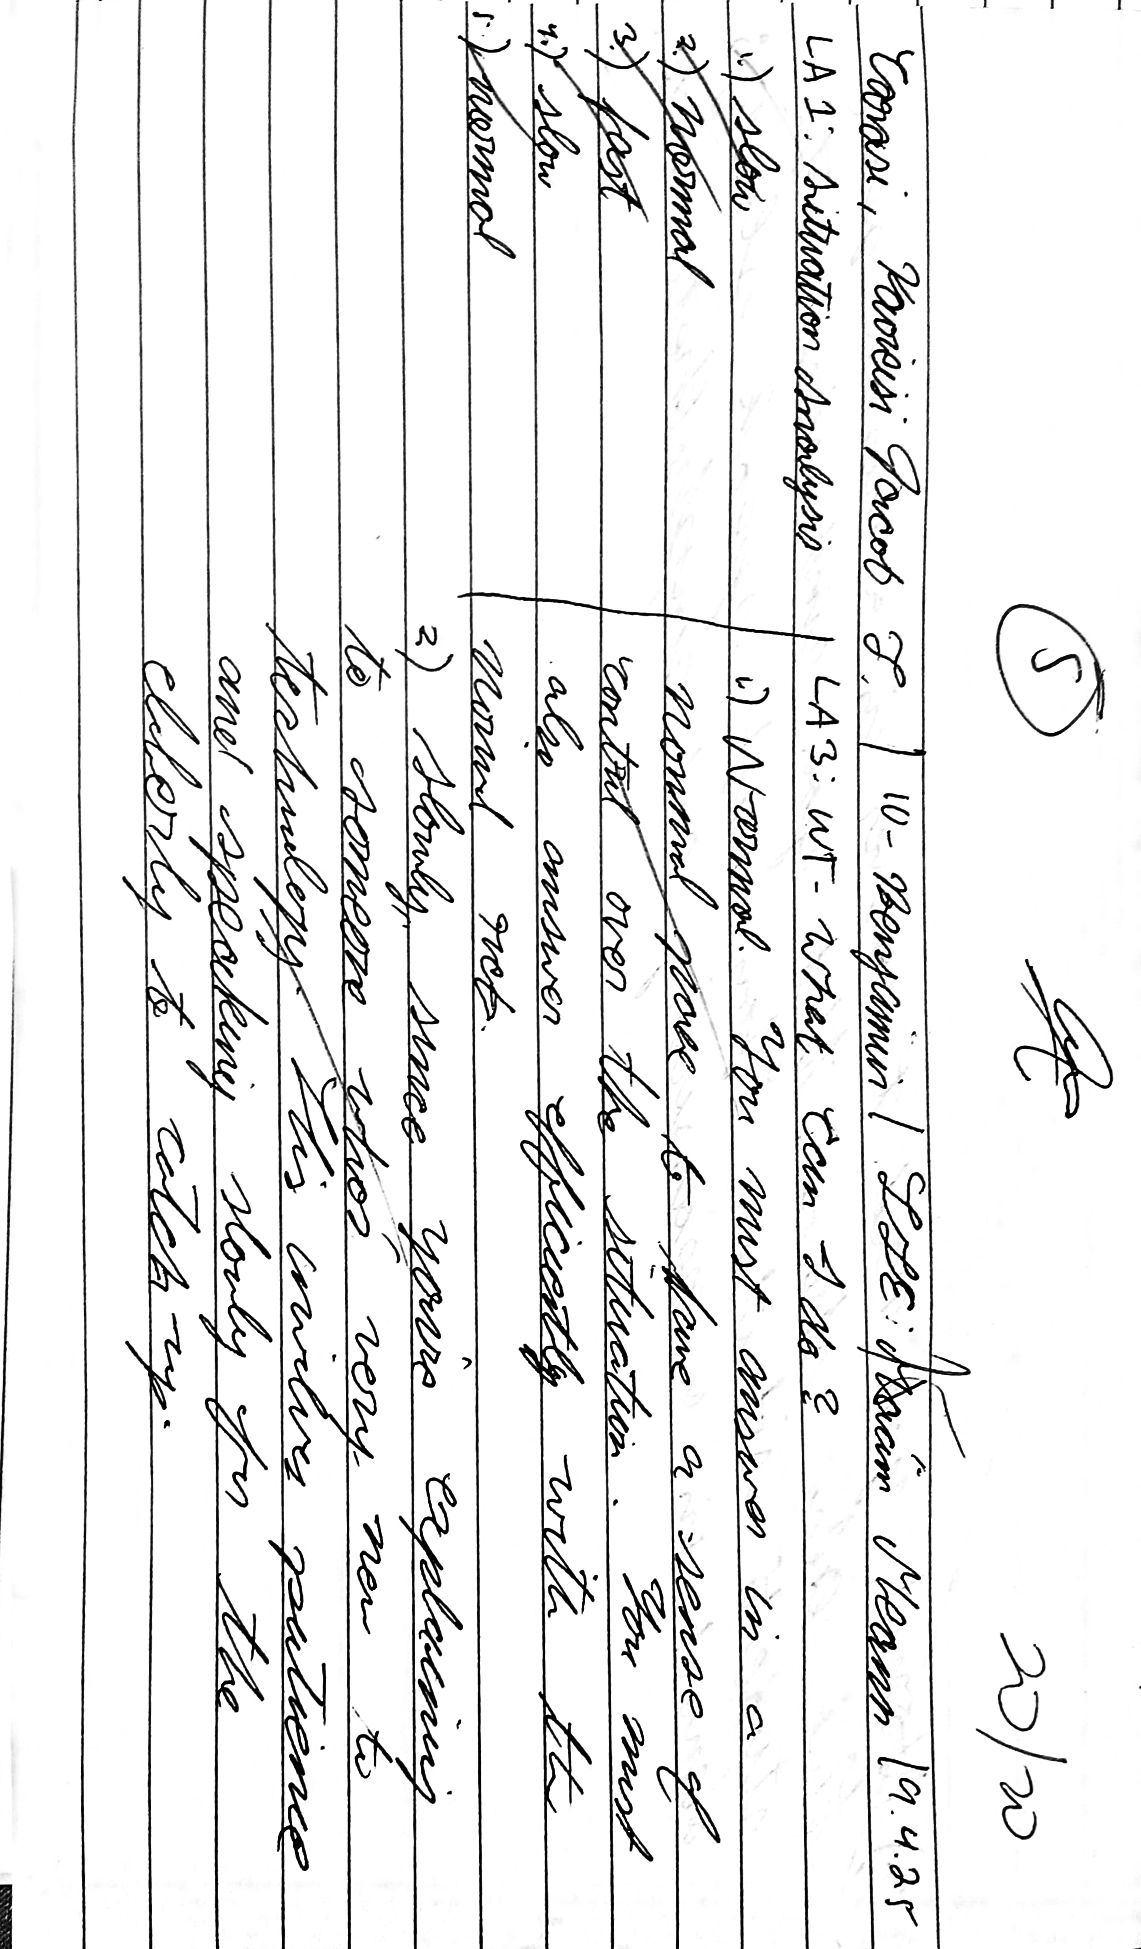 5
20/20
Jacob L. | 10-Benjamin | LLE: Mean | 9.4.25
LA 1: situation analysis
1.) slow
2.) normal
3.) fast
4.) slow
5.) normal
LA3: WT- What Can I do?
1.) Normal. You must answer in a
normal pace to have a sense of
control over the situation. You must
also answer efficiently with the
normal rate.
2) slowly, since you're explaining
to someone who's very new to
technology. This involves patience
and speaking slowly for the
elderly to catch-up.